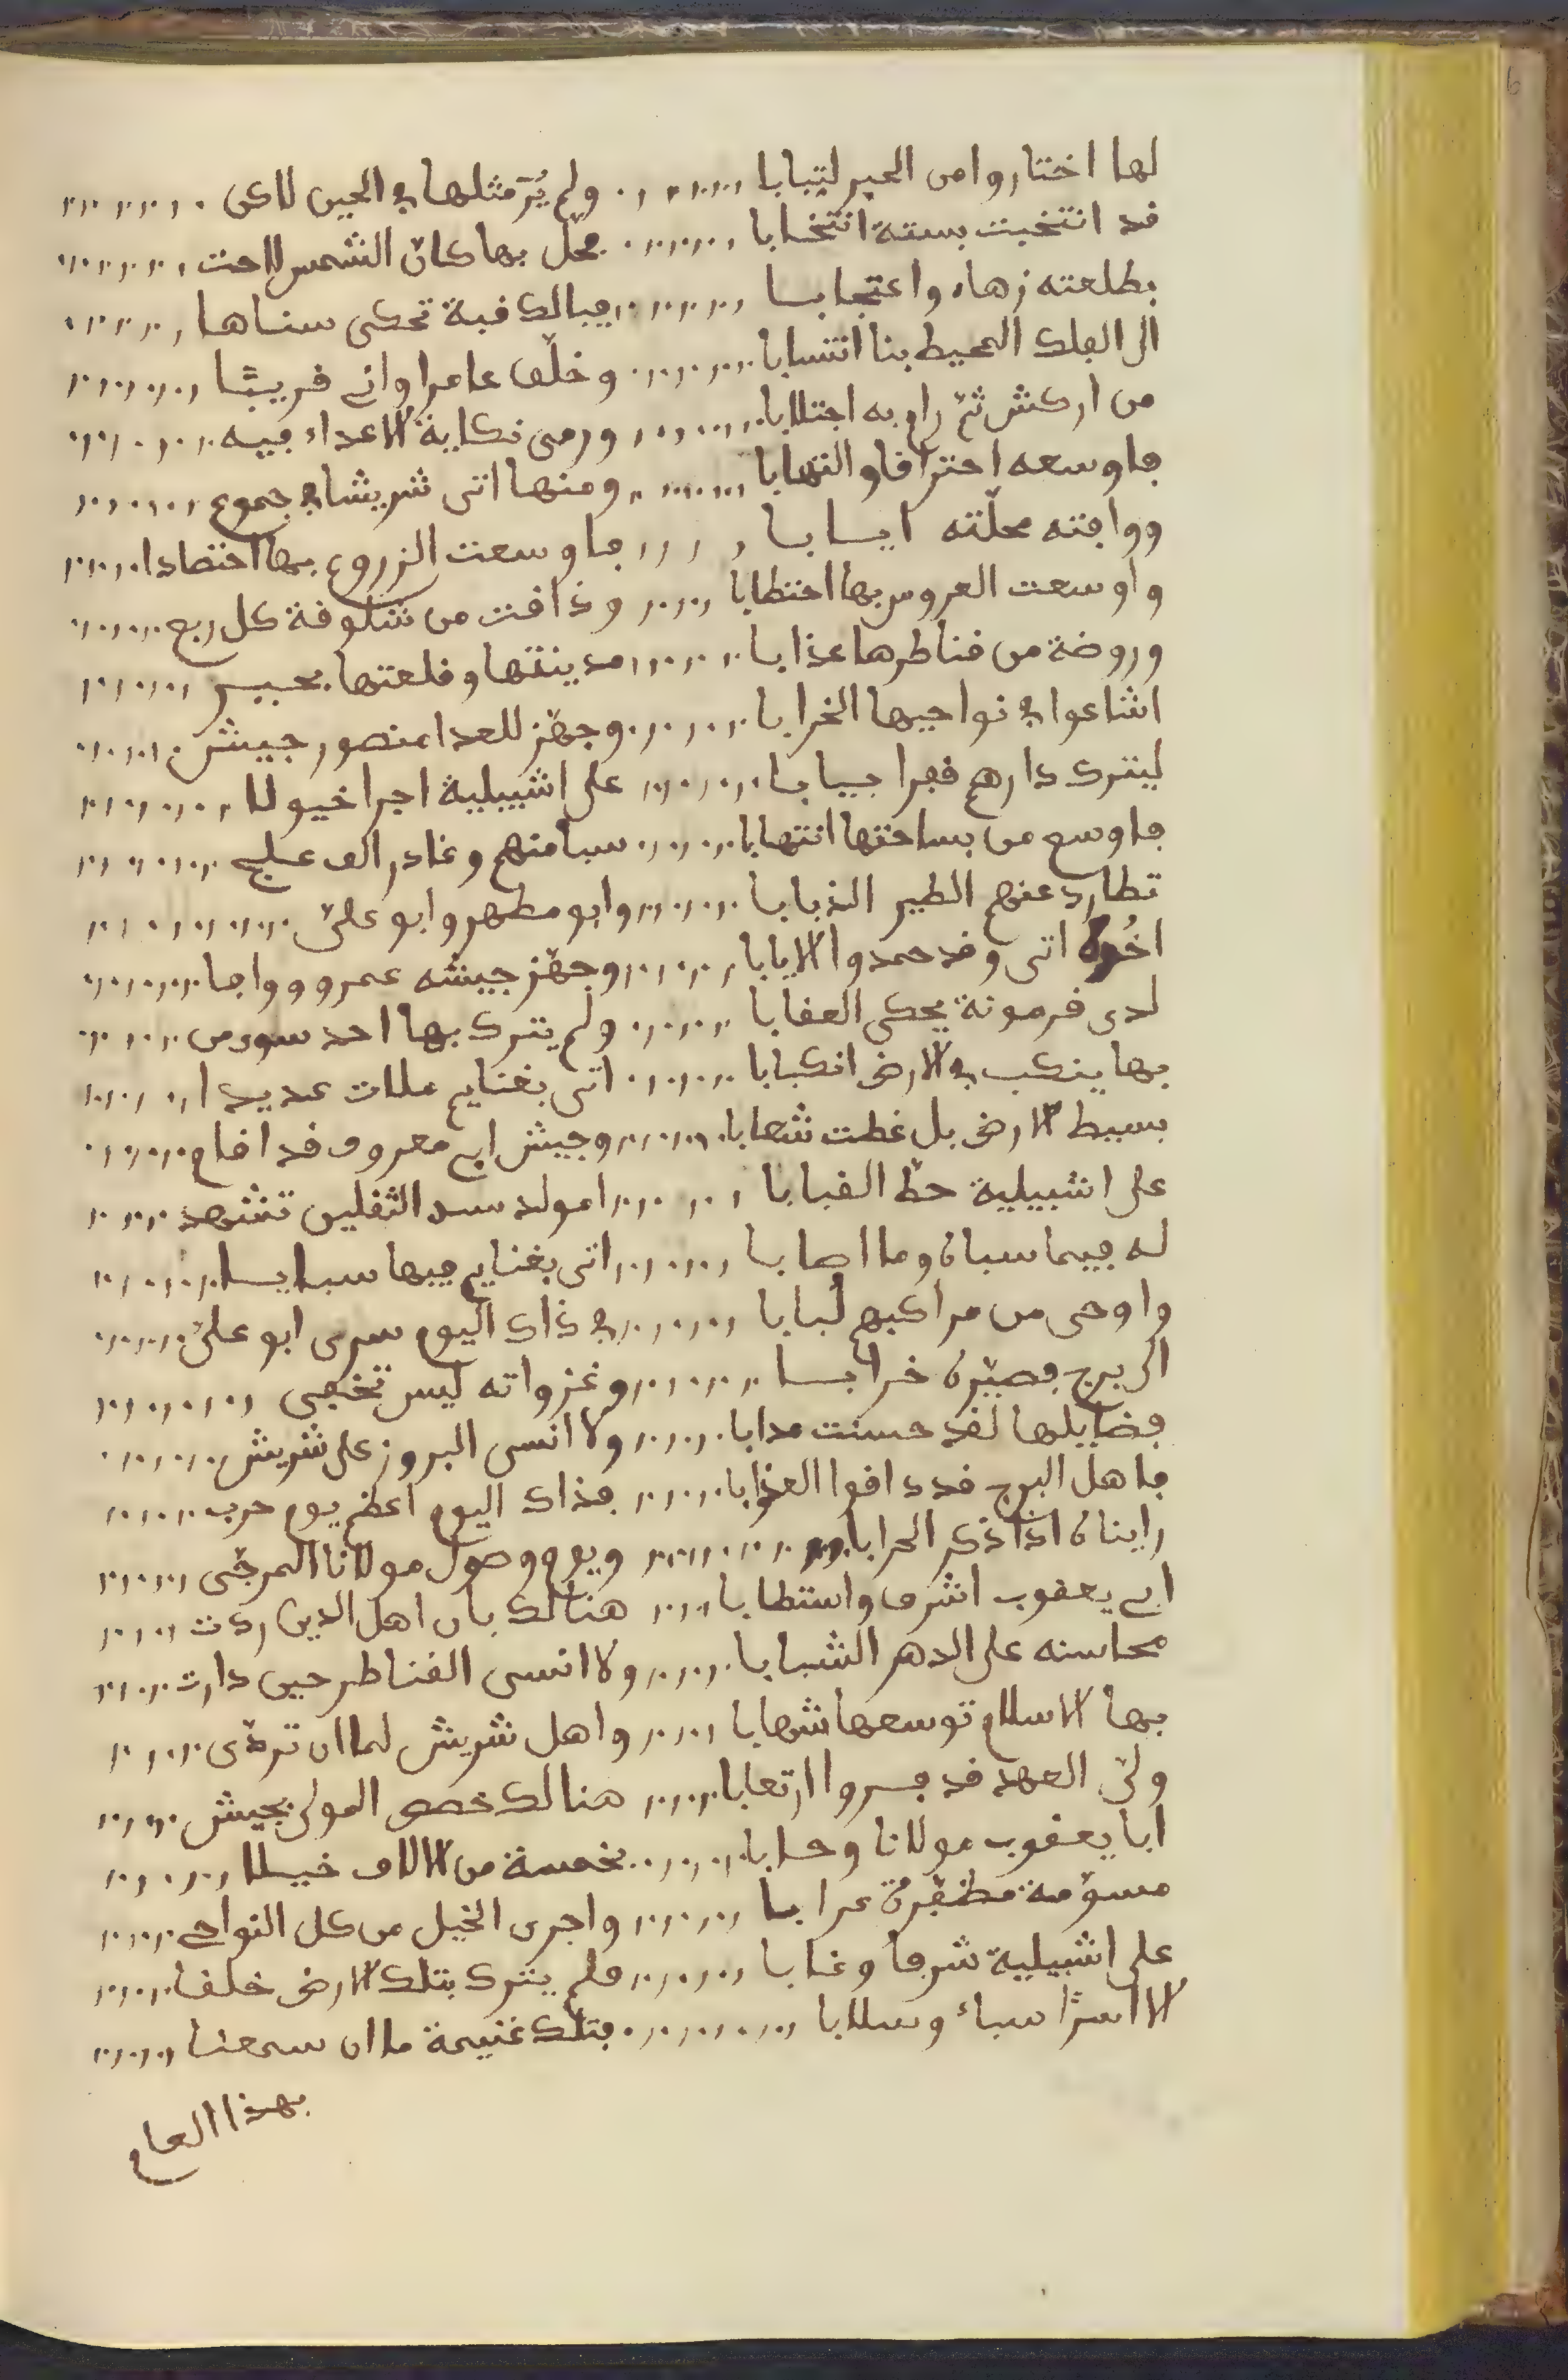 لها اختاروا من الحبر لتبابا ولم يُرَ مثلها في الحين لاكن
قد انتخبت بستة انتخابا محل بها كان الشمس لاحت
بطلعته زهاء واعتجابا فيالك قبة تحكى سناها
الى الفلك المحيط بنا انتسابا وخلّف عامرا واتى قريبًا
من اركش ثمّ رام به اجتلابا ورمى نكاية الاعداء فيه
فاوسعه احتراقا والتهابا ومنها اتى شريشا في جموع
ووافته محلّته ايابا فاوسعت الزروع بها احتصادا
واوسعت العروس بها احتطابا وذاقت من شلوقة كل ربع
وروضة من قناطرها عذابا مدينتها وقلعتها بحبر
اشاعوا في نواحيها الخرابا وجهّز للعدا منصور جيش
ليترك دارهم قفرا يبابا على اشبيلية اجرا خيولا
فاوسع من بساحتها انتهابا سبا منهم وغادر الف علج
تطارد عنهم الطير الذبابا وابو مطهر وابو علىّ
اخُوه اتى وقد حمدوا الايابا وجهّز جيشه عمرو ووافا
لدى قرمونة يحكى العقابا ولم يترك بها احد سوى من
بها ينكب في الارض انكبابا اتى بغنايم ملات عديدا
بسيط الارض بل غطت شعابا وجيش ابى معروف قد اقام
على اشبيلية حطّ القبابا امولد سيد الثقلين تشهد
له فيما سبان وما اصابا اتى بغنايم فيها سبايا
واوحى من مراكبهم لُبابا في ذاك اليوم سرى ابو علىّ
الى برج فصيّره خرابا وغزواته ليس تخفى
فضايلها لقد حسنت مدابا ولا انسى البروز على شريش
فاهل البرج قد ذاقوا العذابا فذاك اليوم اعظم يوم حرب
راينان اذا ذكر الحرابا ويوم وصول مولانا المرجّى
ابى يعقوب اشرف واستطابا هنالك بان اهل الدين ردت
محاسنه على الدهر الشبابا ولا انسى القناطر حين دارت
بها الاسلام توسعها شهابا واهل شريش لما ان تردّى
ولىّ العهد قد فسروا ارتعابا هنالك خصص المولى بجيش
ابا يعقوب مولانا وحابا بخمسة من الالاف خيلا
مسوّمة مظفّرة عرابا واجرى الخيل من كل النواحى
على اشبيلية شرفا وغابا فلم يترك بتلك الارض خلقا
الا اسرًا سباءً وسلابا فتلك غنيمة ما ان سمعنا
بهذا العام